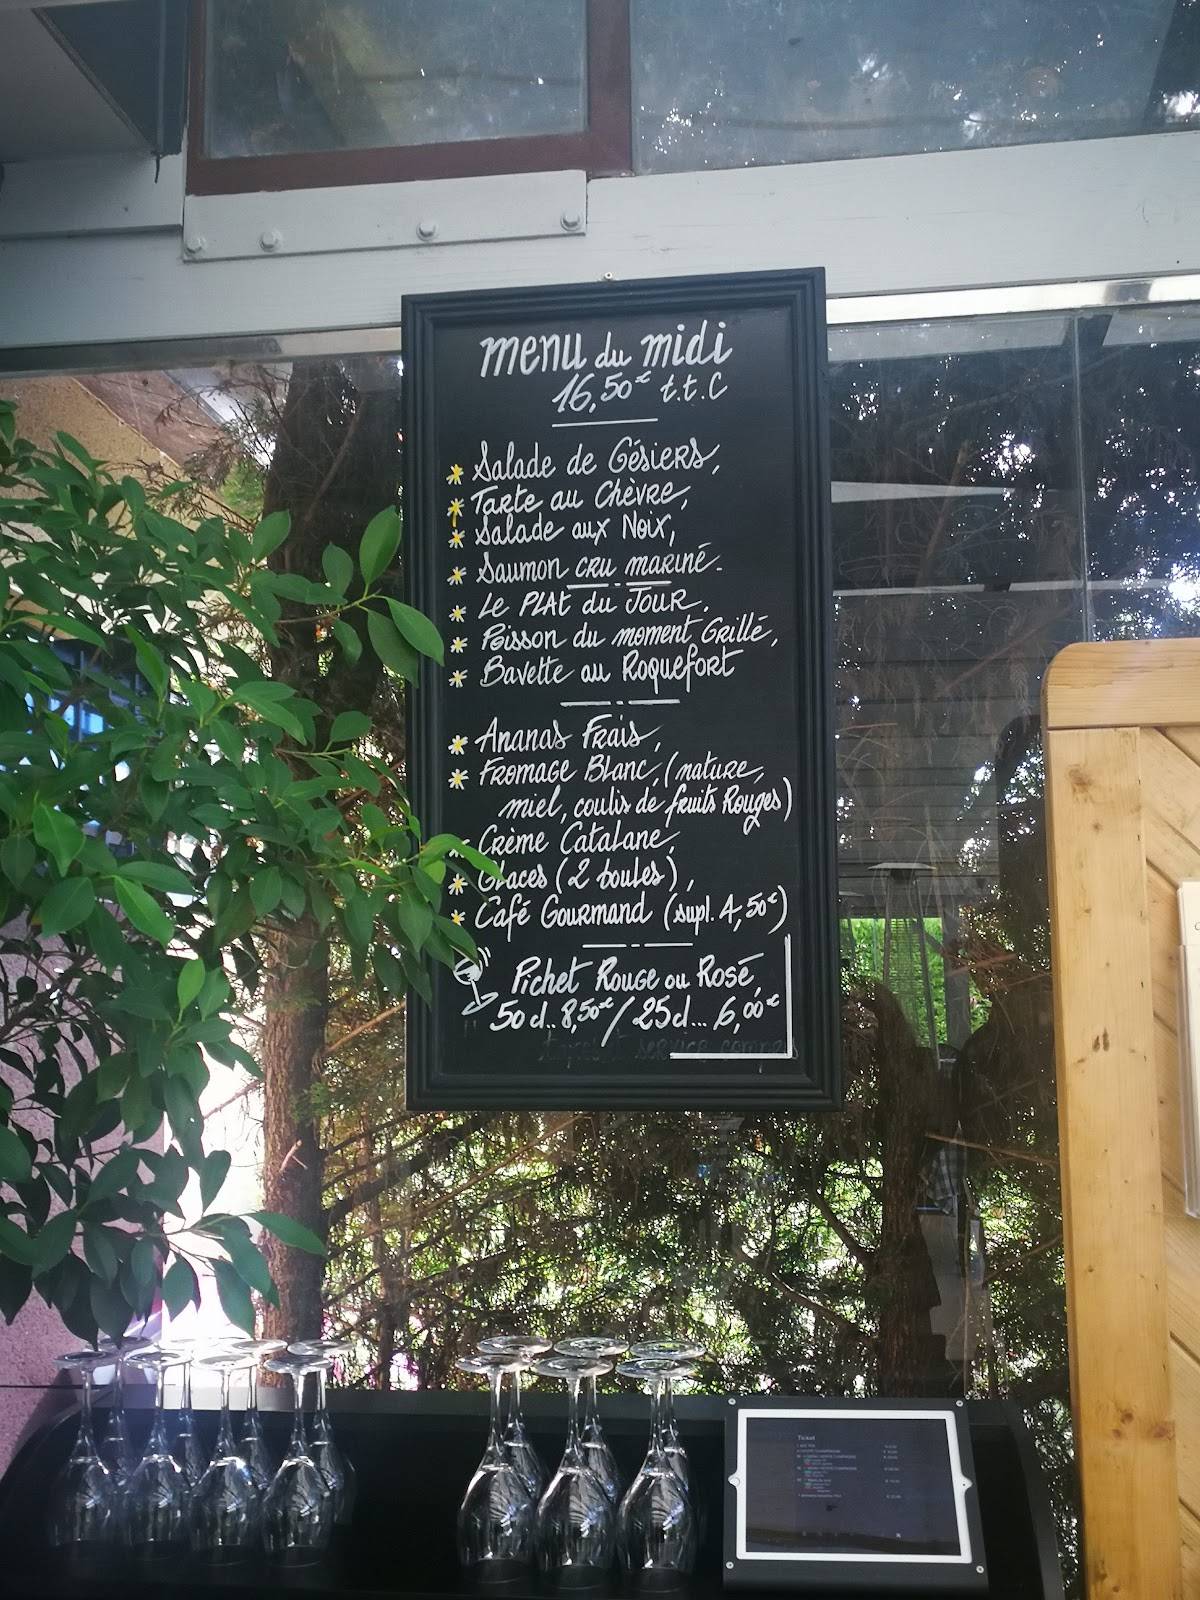 menu du midi
16,50€ t.t.C
Salade de Gésiers,
Tarte au Chèvre,
Salade aux Noix,
Saumon cru mariné.
Le PLAt du Jour.
Poisson du moment Grillé,
Bavette au Roquefort
Ananas Frais,
Fromage Blanc, (nature,
miel, coulis de fruits Rouges)
Crème Catalane,
Glaces (2 boules),
Café Gourmand (supl. 4,50€)
Pichet Rouge ou Rosé,
50cl.. 8,50€ / 25cl... 6,00€
service compris
Ticket